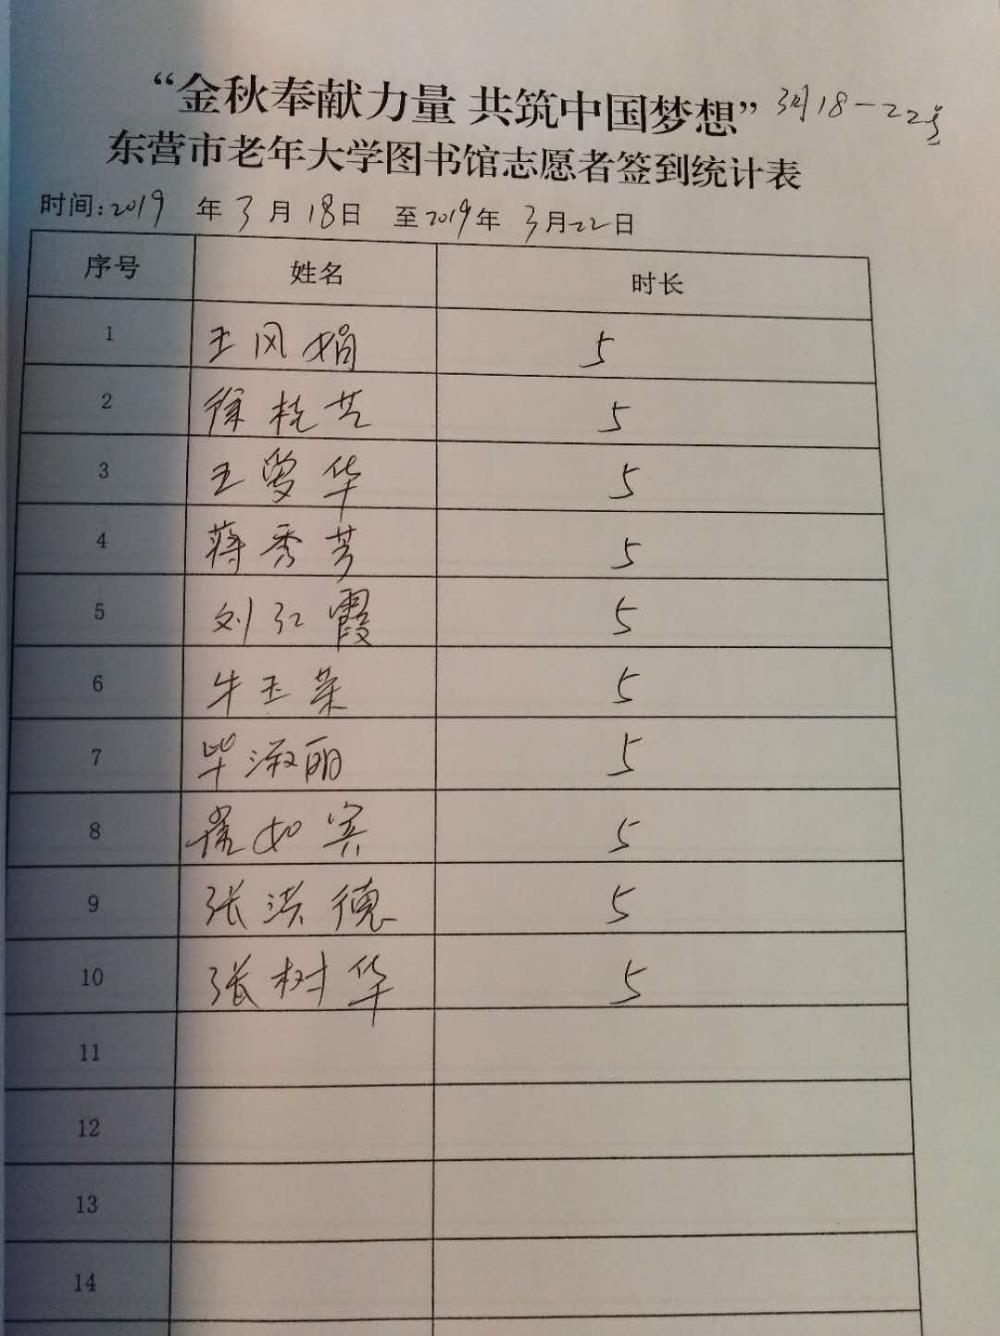 “金秋奉献力量 共筑中国梦想” 3月18-22号
东营市老年大学图书馆志愿者签到统计表
时间:2019 年 3 月 18日 至2019年 3月22日
序号 姓名 时长
1 王风娟 5
2 徐桂芝 5
3 王曼华 5
4 蒋秀芳 5
5 刘红霞 5
6 牛玉荣 5
7 毕淑丽 5
8 如宾 5
9 张洪德 5
10 张树华 5
11
12
13
14